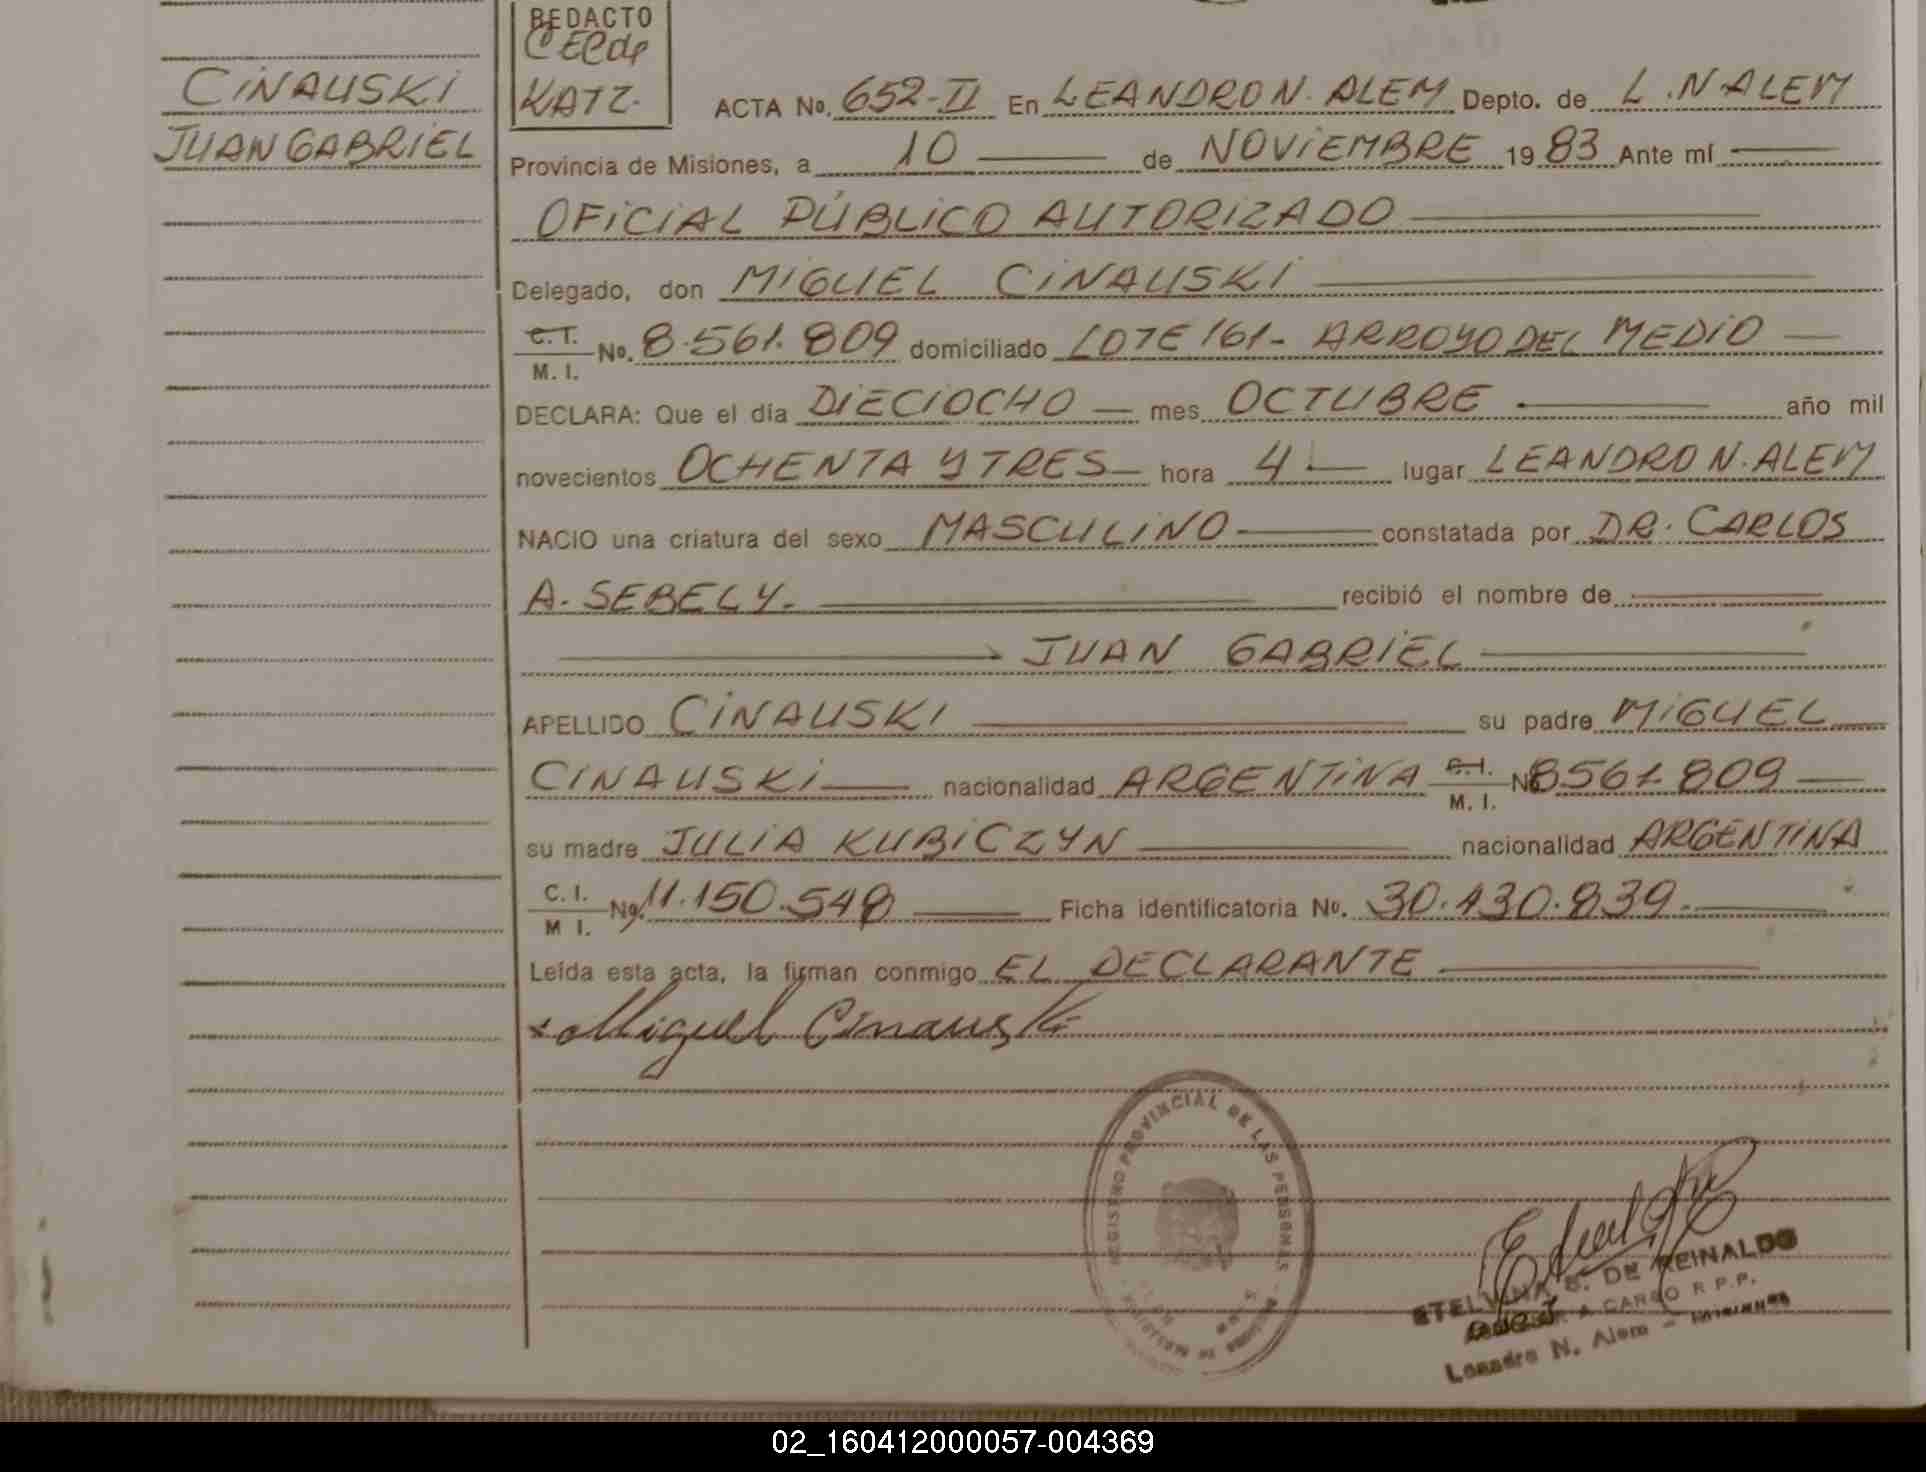 REDACTO
KATZ.
CINAUSKI
JUAN GABRIEL
ACTA No. 652-II En LEANDRO N. ALEM Depto. de L. N ALEM
Provincia de Misiones, a 10 de NOVIEMBRE 1983 Ante mí
OFICIAL PÚBLICO AUTORIZADO
Delegado, don MIGUEL CINAUSKI
C.I. M. I. No. 8.561.809 domiciliado LOTE 161- ARROYO DEL MEDIO
DECLARA: Que el día DIECIOCHO mes OCTUBRE año mil
novecientos OCHENTA Y TRES hora 4 lugar LEANDRO N. ALEM
NACIO una criatura del sexo MASCULINO constatada por DR. CARLOS
A. SEBELY. recibió el nombre de
JUAN GABRIEL
APELLIDO CINAUSKI su padre MIGUEL
CINAUSKI nacionalidad ARGENTINA C.I. M. I. No 8561.809
su madre JULIA KUBICZYN nacionalidad ARGENTINA
C. I. M I. No. 11.150.548 Ficha identificatoria No. 30.430.839.
Leída esta acta, la firman conmigo EL DECLARANTE
Miguel Cinauski
REGISTRO PROVINCIAL DE LAS PERSONAS
ETELVINA B. DE REINALDO
A CARGO R.P.P.
Leandro N. Alem - Misiones
02_160412000057-004369